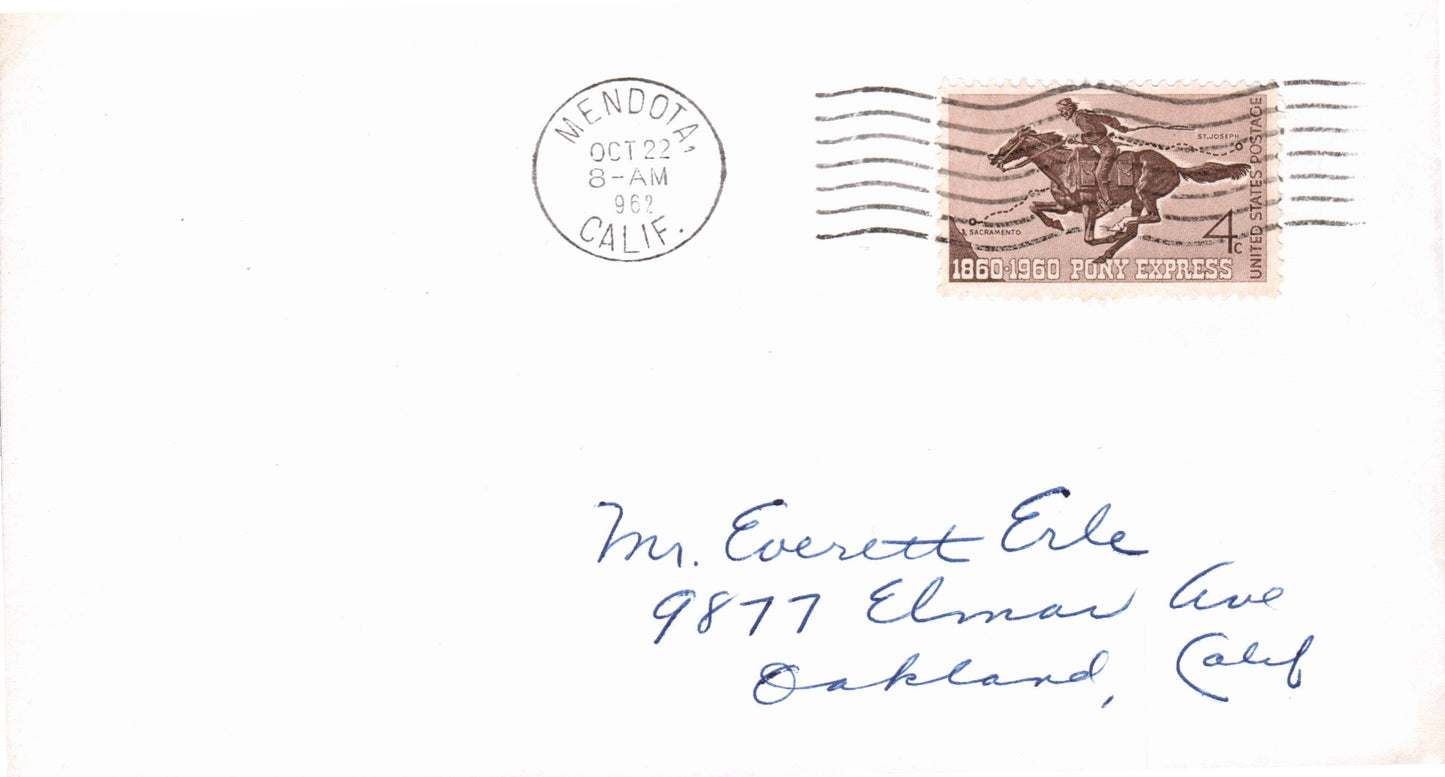 MENDOTA,
OCT 22
8-AM
962
CALIF.
ST. JOSEPH
SACRAMENTO
4c
UNITED STATES POSTAGE
1860-1960 PONY EXPRESS
Mr. Everett Erle
9877 Elmar Ave
Oakland, Calif